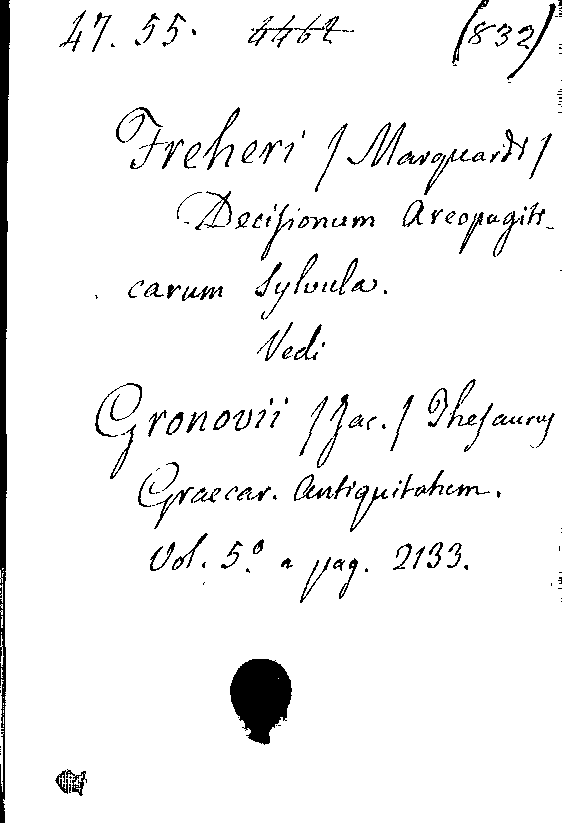 47. 55. 4462 (832)
Freheri / Marquardi /
Decisionum Areopagiti-
carum Sylvula.
Vedi
Gronovii / Jac. / Thesaurus
Graecar. Antiquitatum.
Vol. 5º a pag. 2133.